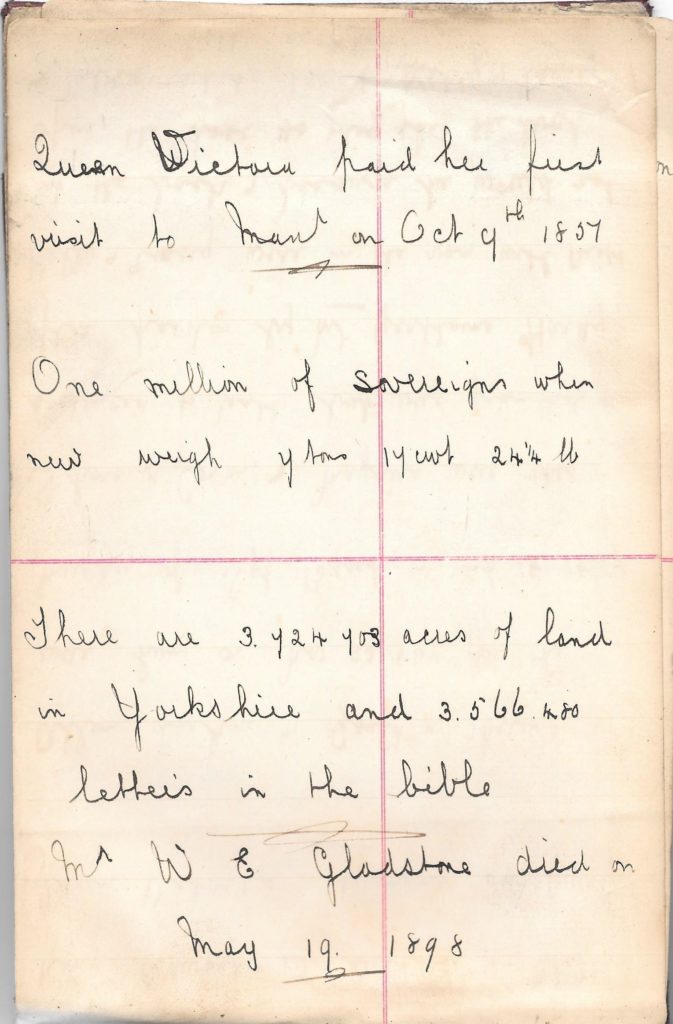 Queen Victoria paid her first
visit to Manr on Oct 7th 1851
One million of sovereigns when
new weigh 7 tons 17 cwt 24 1/4 lb
There are 3.724 703 acres of land
in Yorkshire and 3.566.480
letters in the bible
Mr W E Gladstone died on
May 19. 1898